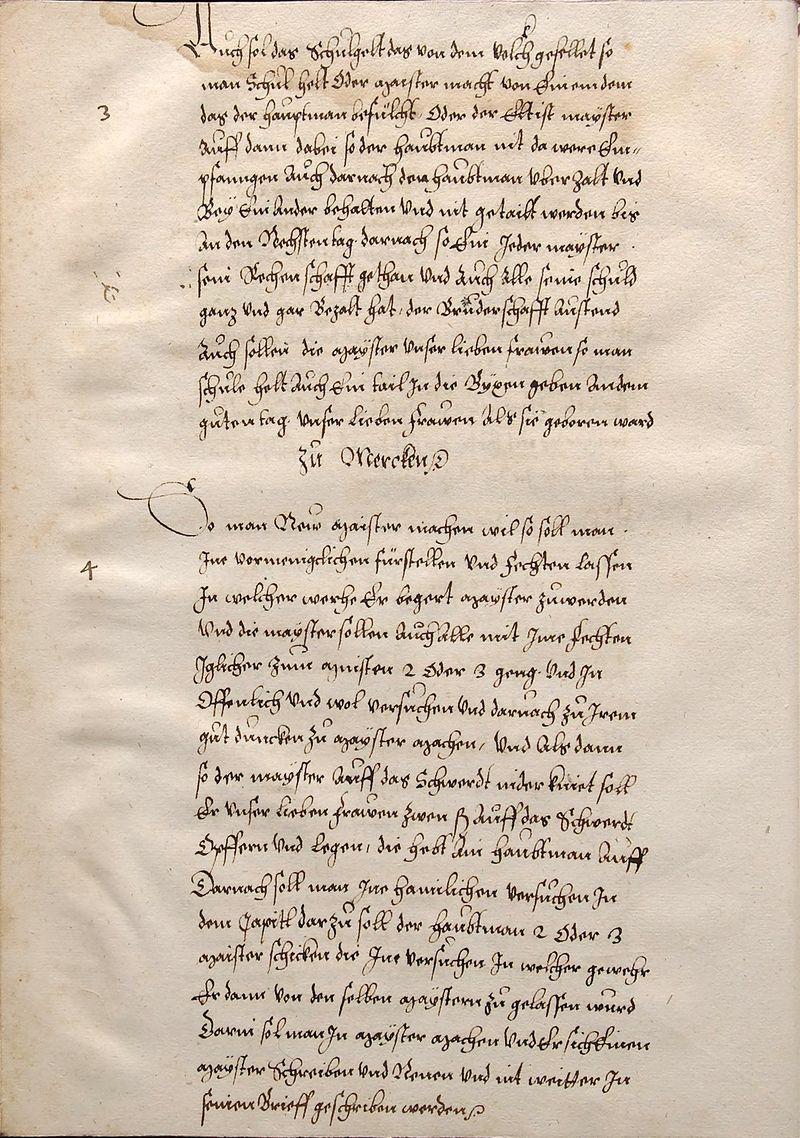 Auch sol das Schulgelt das von dem volch gefellet so
man Schul helt Oder maister macht von Einem dem
3
das der hauptman befülcht Oder der Eltist mayster
Auff dann dabei so der haubtman nit da were Em-
pfanngen Auch darnach dem haubtman vberzalt vnd
Bey Ein Ander behalten vnd nit getailt werden bis
An den Nechsten tag darnach so Ein Jeder mayster
sein Rechenschafft gethan vnd Auch Alle seine schuld
ganz vnd gar Bezalt hat, der Bruderschafft Austend
Auch sollen die mayster vnser lieben frawen so man
schule helt Auch Ein tail In die Byxen geben An dem
guten tag vnser lieben frawen Als sie geboren ward
Zu Mercken
So man New maister machen wil so soll man
4
Ine vormenigclichen fürstellen vnd fechten lassen
In welcher werhe Er begert mayster zuwerden
Vnd die mayster sollen Auch Alle mit Ime fechten
Iglicher zum minsten 2 Oder 3 geng vnd In
Offenlich vnd wol versuchen vnd darnach zu Irem
gut duncken zu mayster machen, vnd Als dann
so der mayster Auff das Schwerdt nider kniet soll
Er vnser lieben frawen zwen ß Auff das Schwerdt
Opffern vnd legen, die hebt Ain haubtman Auff
Darnach soll man Ine haimlichen versuchen In
dem Capitl darzu soll der haubtman 2 Oder 3
maister schicken die Ine versuchen In welcher gewehr
Er dann von den selben maystern zu gelassen wurd
Darin sol man In mayster machen vnd Er sich Einen
mayster Schreiben vnd Nenen vnd nit weitter In
seinen Brieff geschriben werden